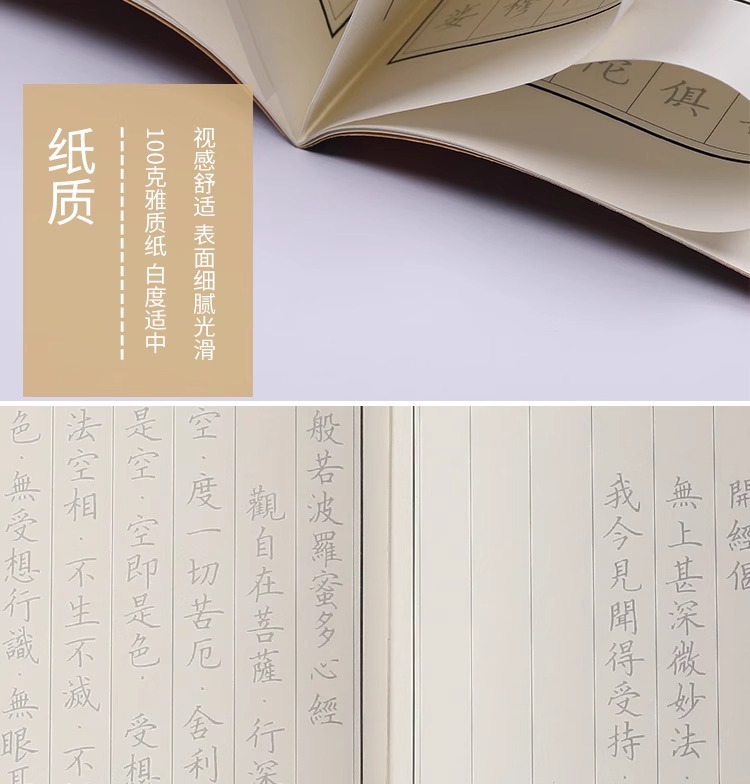 陀俱
纸质
视感舒适 表面细腻光滑
100克雅质纸 白度适中
開經偈
無上甚深微妙法
我今見聞得受持
般若波羅蜜多心經
觀自在菩薩·行深
空·度一切苦厄·舍利
是空·空即是色·受想
法空相·不生不滅·不
色·無受想行識·無眼